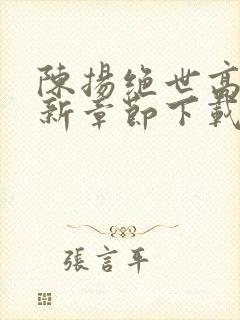 陳揚絕世高
新章節下載
張言平